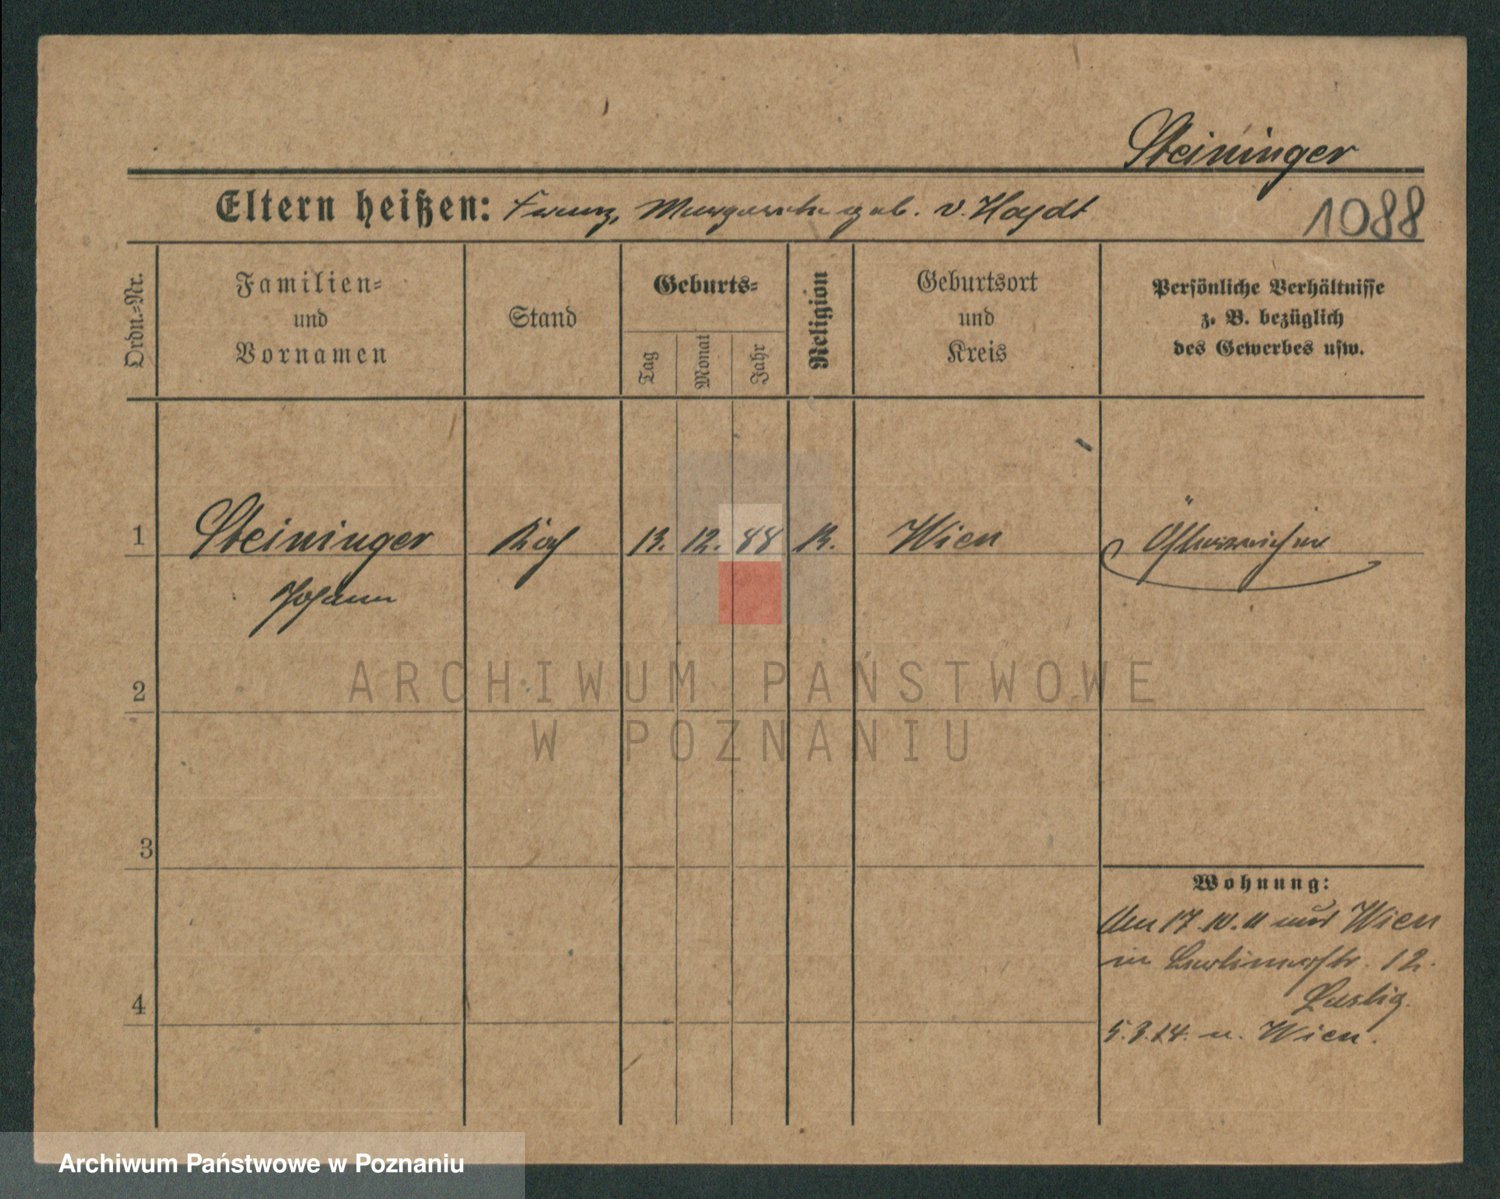 Steininger
Eltern heißen: Franz, Margarethe geb. v. Haydt
1088
Ordn.-Nr.
Familien-
und
Vornamen
Stand
Geburts-
Tag
Monat
Jahr
Religion
Geburtsort
und
Kreis
Persönliche Verhältnisse
z. B. bezüglich
des Gewerbes usw.
1 Steininger Koch 13. 12. 88 K. Wien Österreicher
Johann
ARCHIWUM PAŃSTWOWE
W POZNANIU
2
3
4
Wohnung:
Am 17.10.11 aus Wien
in Berlinerstr. 12.
5.3.14. n. Wien.
Archiwum Państwowe w Poznaniu